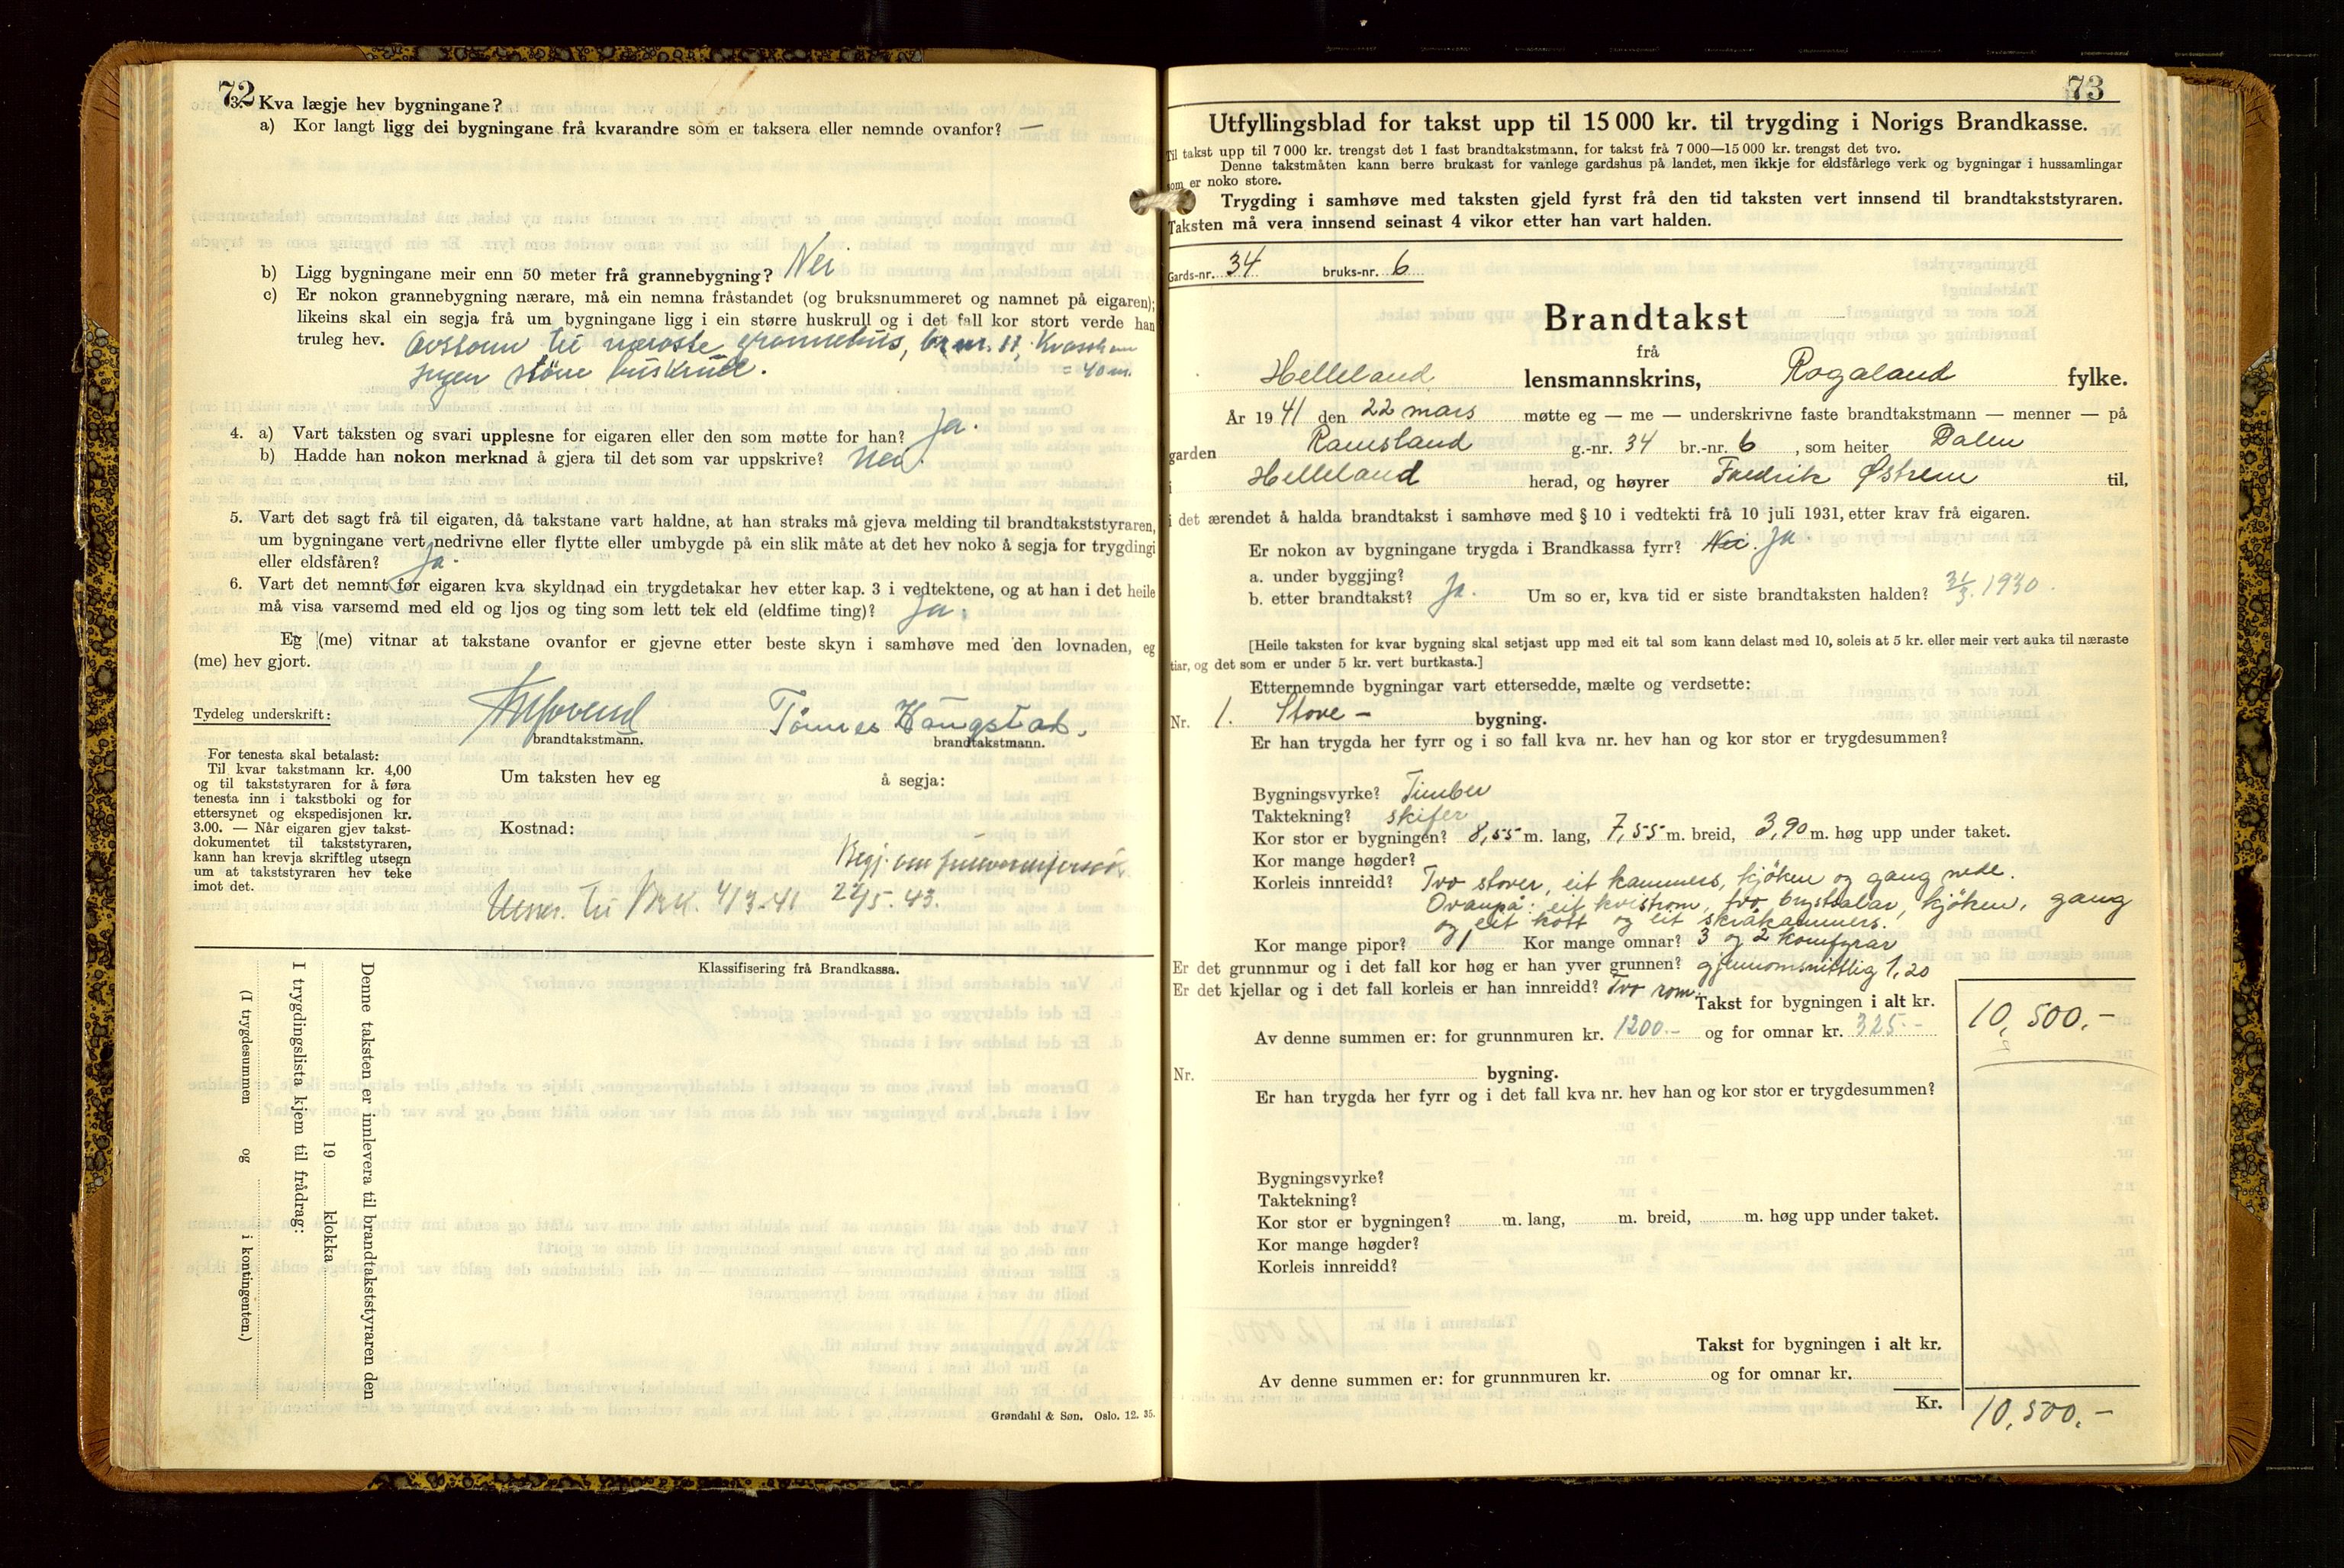 72
3. Kva lægje hev bygningane?
a) Kor langt ligg dei bygningane frå kvarandre som er taksera eller nemnde ovanfor? —
b) Ligg bygningane meir enn 50 meter frå grannebygning? Nei
c) Er nokon grannebygning nærare, må ein nemna fråstandet (og bruksnummeret og namnet på eigaren);
likeins skal ein segja frå um bygningane ligg i ein større huskrull og i det fall kor stort verde han
truleg hev. til næraste grannehus, br.nr. 11,
Ingen større huskrull. = 40 m.
4. a) Vart taksten og svari upplesne for eigaren eller den som møtte for han? Ja.
b) Hadde han nokon merknad å gjera til det som var uppskrive? Nei.
5. Vart det sagt frå til eigaren, då takstane vart haldne, at han straks må gjeva melding til brandtakststyraren,
um bygningane vert nedrivne eller flytte eller umbygde på ein slik måte at det hev noko å segja for trygdingi
eller eldsfåren? Ja.
6. Vart det nemnt for eigaren kva skyldnad ein trygdetakar hev etter kap. 3 i vedtektene, og at han i det heile
må visa varsemd med eld og ljos og ting som lett tek eld (eldfime ting)? Ja.
Eg (me) vitnar at takstane ovanfor er gjevne etter beste skyn i samhøve med den lovnaden, eg
(me) hev gjort.
Tydeleg underskrift: Tønnes Haugstad.
brandtakstmann. brandtakstmann.
For tenesta skal betalast:
Til kvar takstmann kr. 4,00
og til takststyraren for å føra
tenesta inn i takstboki og for
ettersynet og ekspedisjonen kr.
3.00. — Når eigaren gjev takst-
dokumentet til takststyraren,
kann han krevja skriftleg utsegn
um at takststyraren hev teke
imot det.
Um taksten hev eg å segja:
Kostnad:
22/5. 43.
til 4/3-41
Klassifisering frå Brandkassa.
Denne taksten er innlevera til brandtakststyraren den
19 klokka
I trygdingslista kjem til frådrag:
(I trygdesummen og i kontingenten.)
Grøndahl & Søn. Oslo. 12. 35.
73
Utfyllingsblad for takst upp til 15 000 kr. til trygding i Norigs Brandkasse.
Til takst upp til 7 000 kr. trengst det 1 fast brandtakstmann, for takst frå 7 000—15 000 kr. trengst det tvo.
Denne takstmåten kann berre brukast for vanlege gardshus på landet, men ikkje for eldsfårlege verk og bygningar i hussamlingar
som er noko store.
Trygding i samhøve med taksten gjeld fyrst frå den tid taksten vert innsend til brandtakststyraren.
Taksten må vera innsend seinast 4 vikor etter han vart halden.
Gards-nr. 34 bruks-nr. 6
Brandtakst
frå
Helleland lensmannskrins, Rogaland fylke.
År 1941 den 22 mars møtte eg — me — underskrivne faste brandtakstmann — menner — på
garden Ramsland g.-nr. 34 br.-nr. 6, som heiter Dalen
i Helleland herad, og høyrer Fredrik Østrem til,
i det ærendet å halda brandtakst i samhøve med § 10 i vedtekti frå 10 juli 1931, etter krav frå eigaren.
Er nokon av bygningane trygda i Brandkassa fyrr? Nei. Ja.
a. under byggjing?
b. etter brandtakst? Ja. Um so er, kva tid er siste brandtaksten halden? 31/3. 1930.
[Heile taksten for kvar bygning skal setjast upp med eit tal som kann delast med 10, soleis at 5 kr. eller meir vert auka til næraste
tiar, og det som er under 5 kr. vert burtkasta.]
Etternemnde bygningar vart ettersedde, mælte og verdsette:
Nr. 1. Stove - bygning.
Er han trygda her fyrr og i so fall kva nr. hev han og kor stor er trygdesummen?
Bygningsvyrke? Timber
Taktekning? skifer
Kor stor er bygningen? 8,55 m. lang, 7,55 m. breid, 3,90 m. høg upp under taket.
Kor mange høgder?
Korleis innreidd? Tvo stover, eit kammers, kjøken og gang nede.
Ovanpå: eit kvistrom, tvo brystsalar, kjøken, gang
og eit kott og eit skråkammers.
Kor mange pipor? 1 Kor mange omnar? 3 og 2 komfyrar
Er det grunnmur og i det fall kor høg er han yver grunnen? gjennomsnittlig 1,20
Er det kjellar og i det fall korleis er han innreidd? Tvo rom.
Takst for bygningen i alt kr. 10,500.-
Av denne summen er: for grunnmuren kr. 1200.- og for omnar kr. 325.-
Nr. bygning.
Er han trygda her fyrr og i det fall kva nr. hev han og kor stor er trygdesummen?
Bygningsvyrke?
Taktekning?
Kor stor er bygningen? m. lang, m. breid, m. høg upp under taket.
Kor mange høgder?
Korleis innreidd?
Takst for bygningen i alt kr.
Av denne summen er: for grunnmuren kr. og for omnar kr.
Kr. 10,500.-